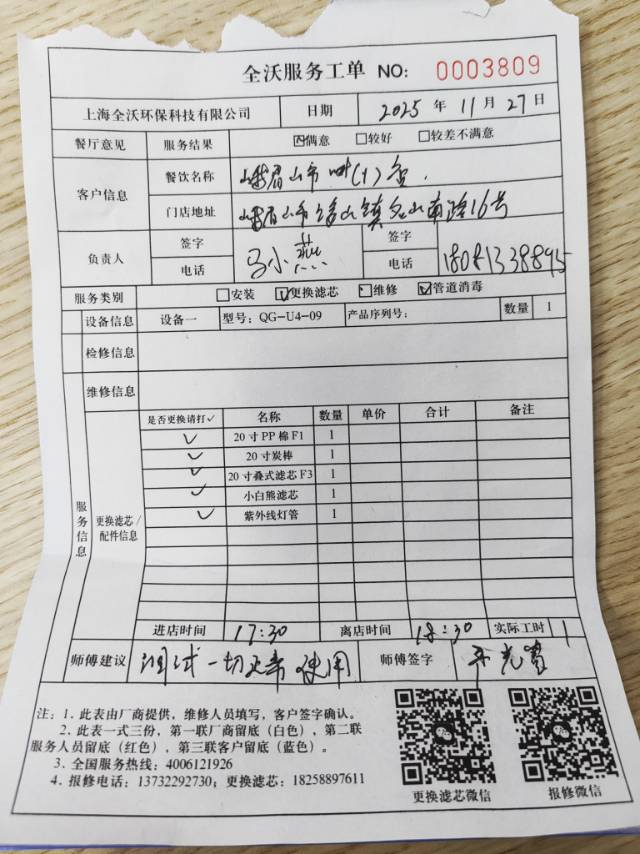 全沃服务工单 NO: 0003809
上海全沃环保科技有限公司 日期 2025 年 11 月 27 日
餐厅意见 服务结果 ☑满意 □较好 □较差不满意
客户信息 餐饮名称 峨眉山市
门店地址 峨眉山市绥山镇名山南路16号
负责人 签字 马小燕 签字
电话 电话 18081338895
服务类别 □安装 ☑更换滤芯 □维修 ☑管道消毒
服务信息
设备信息 设备一 型号: QG-U4-09 产品序列号: 数量 1
检修信息
维修信息
更换滤芯/配件信息
是否更换请打✓ 名称 数量 单价 合计 备注
✓ 20寸PP棉F1 1
✓ 20寸炭棒 1
✓ 20寸叠式滤芯F3 1
✓ 小白熊滤芯 1
✓ 紫外线灯管 1
进店时间 17:30 离店时间 18:30 实际工时 1
师傅建议 调试一切正常 使用 师傅签字
注: 1. 此表由厂商提供, 维修人员填写, 客户签字确认。
2. 此表一式三份, 第一联厂商留底(白色), 第二联
服务人员留底(红色), 第三联客户留底(蓝色)。
3. 全国服务热线: 4006121926
4. 报修电话: 13732292730; 更换滤芯: 18258897611
更换滤芯微信 报修微信